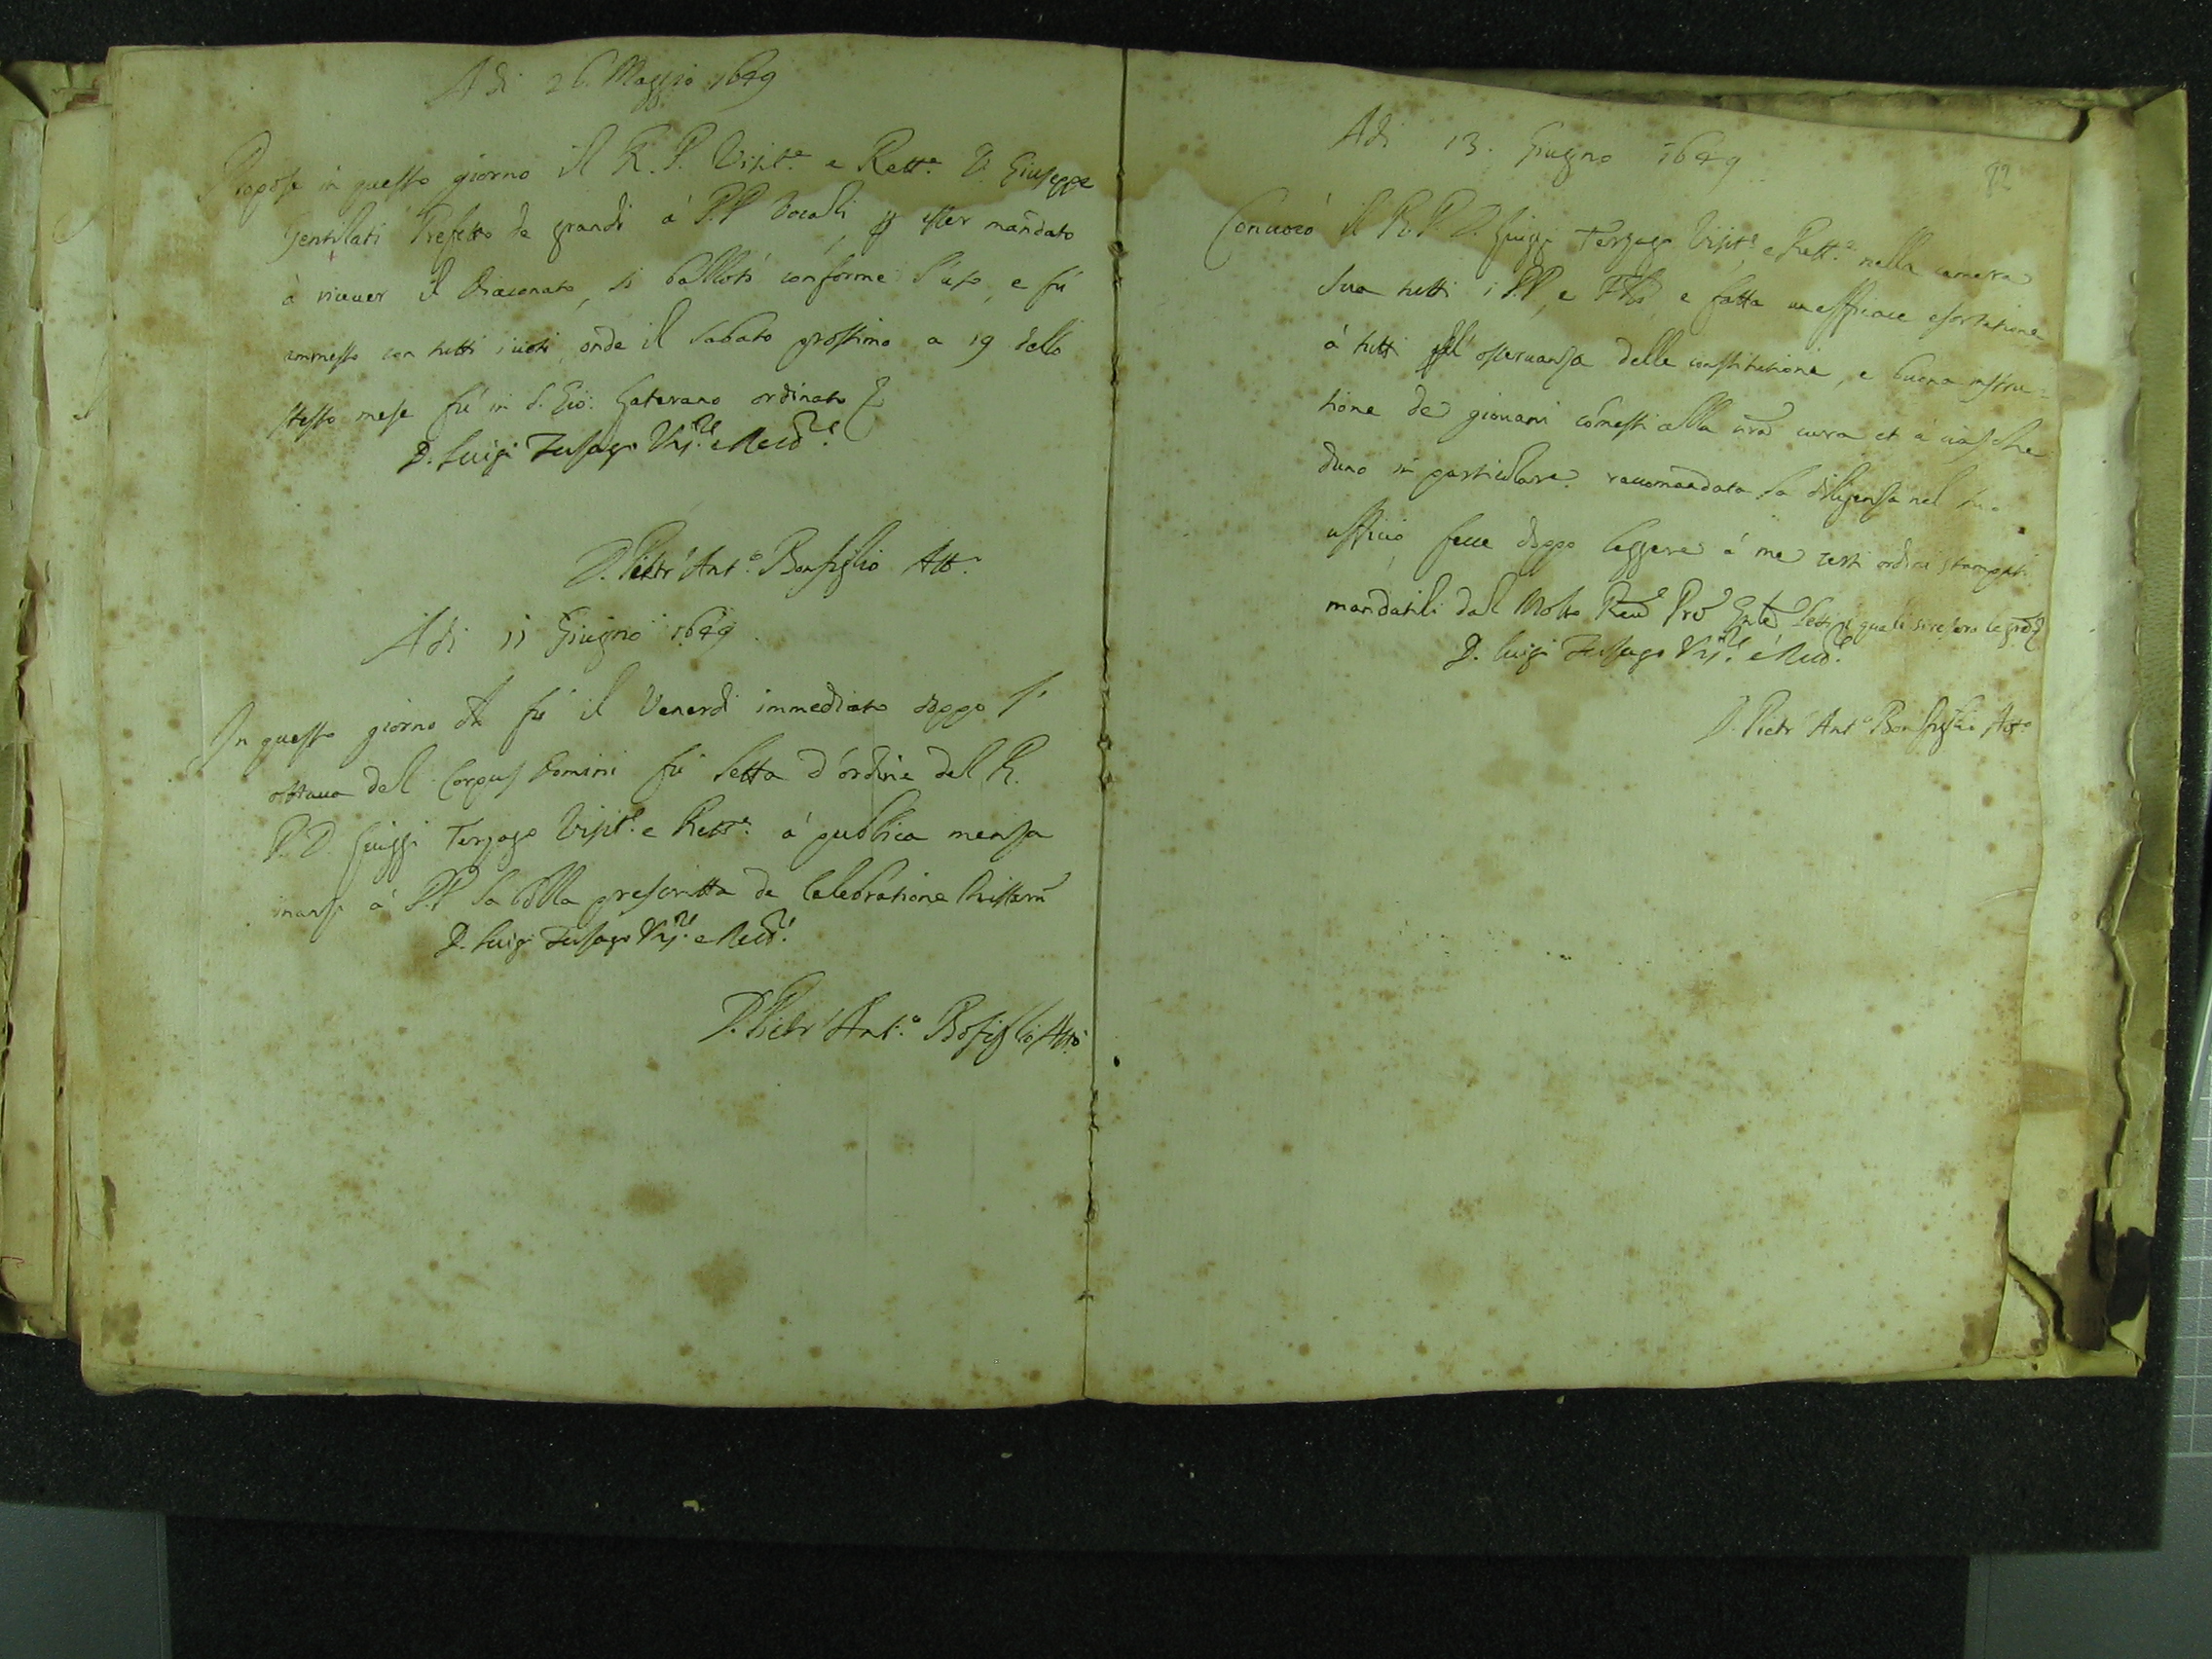 Adi 26. Maggio 1649
Propose in questo giorno il R. P. Visit.e e Rett.e D. Giuseppe
Gentilati Prefetto de grandi a' P.P. Vocali, p esser mandato
à riceuer il Diaconato, si ballotò conforme l'uso, e fù
ammesso con tutti i uoti, onde il sabato prossimo a 19 dello
stesso mese fù in S. Gio: Laterano ordinato
D. Luigi Tersago Vis.re e Rett.re
D. Pietr' Ant.o Bonfiglio Att.o
Adi 11 Giugno 1649.
In questo giorno ch fù il Venerdi immediato doppo l'
ottaua del Corpus Domini fù letta d'ordine del R.
P. D. Luiggi Terzago Visit.e e Rett.e à publica mensa
inanzi à P.P. la bolla prescritta de Celebratione Missarũ
D. Luigi Tersago Vis.re e Rett.re
D. Pietr' Ant.o Bõfiglio Att.o
82
Adi 13. Giugno 1649
Conuocò il R. P. D. Luiggi Terzago Visit.e, e Rett.e nella camera
sua tutti i P.P, e Flli, e fatta un efficace esortatione
à tutti dell' osseruanza delle constitutioni, e buona instru=
tione de giouani cõmessi alla nrã cura et à ciasche
duno in particolare raccomandata la diligenza nel suo
ufficio, fece doppo leggere à me certi ordini stampati
mandatili dal Molto Reu.do Prẽ Gnle letti i quali si resero le
D. Luigi Tersago Vis.re e Rett.re
D. Pietr' Ant.o Bonfiglio Att.o